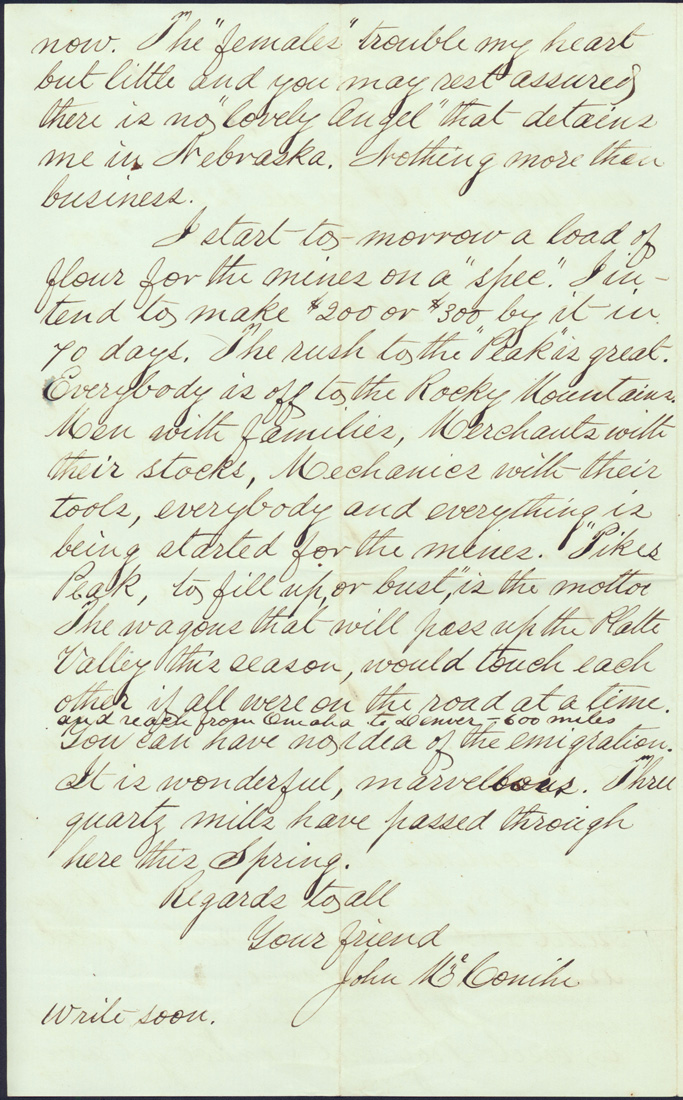 now. The "females" trouble my heart
but little and you may rest assured
there is no "lovely Angel" that detains
me in Nebraska. Nothing more than
business.
I start to-morrow a load of
flour for the mines on a "spec". I in-
tend to make $200 or $300 by it in
70 days. The rush to the "Peak" is great.
Everybody is off to the Rocky Mountains.
Men with families, Merchants with
their stocks, Mechanics with their
tools, everybody and everything is
being started for the mines. "Pikes
Peak, to fill up, or bust," is the motto
The wagons that will pass up the Platte
Valley this season, would touch each
other if all were on the road at a time.
and reach from Omaha to Denver - 600 miles
You can have no idea of the emigration.
It is wonderful, marvellous. Three
quartz mills have passed through
here this Spring.
Regards to all
Your friend
John McConihe
Write soon.